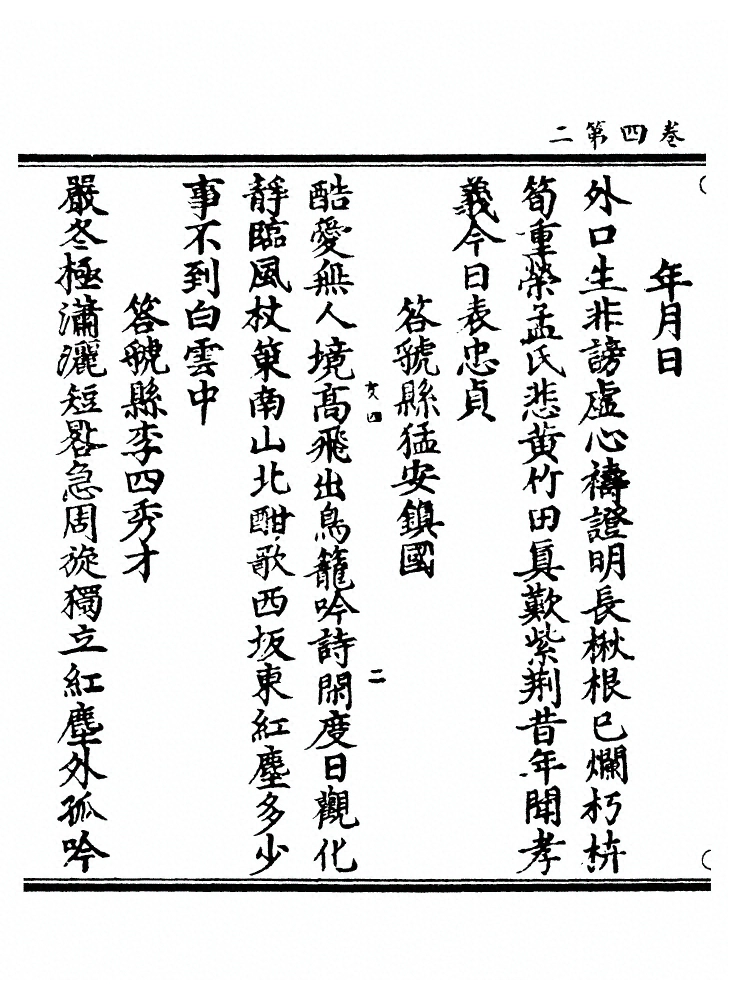 卷四第二
年月日
外口生非謗虛心禱證明長楸根已爛朽枿
筍重榮孟氏悲黃竹田真歎紫荊昔年聞孝
義今日表忠貞
答虢縣猛安鎮國
四 二
酷愛無人境高飛出鳥籠吟詩閑度日觀化
靜臨風杖策南山北酣歌西坂東紅塵多少
事不到白雲中
答虢縣李四秀才
嚴冬極瀟灑短晷急周旋獨立紅塵外孤吟